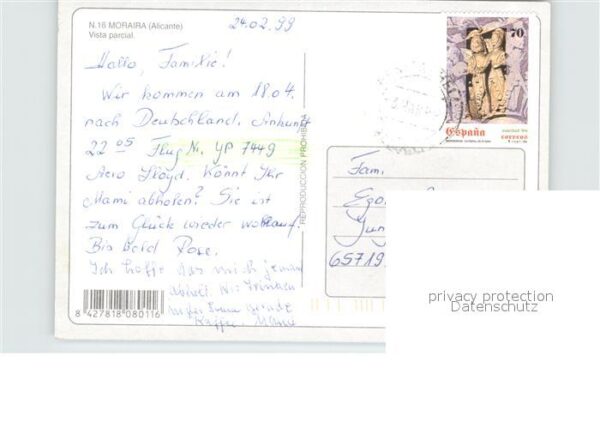 N.16 MORAIRA (Alicante)
Vista parcial.
24.02.99
Hallo, Familie!
Wir kommen am 18.04.
nach Deutschland. Ankunft
22 05 Flug Nr. YP 7449
Aero Lloyd. Könnt Ihr
Mami abholen? Sie ist
zum Glück wieder wohlauf.
Bis bald Rose.
Ich hoffe das mich jemand
abholt. Wir trinken
Kaffee. Mama
8 427818 080116
REPRODUCCION PROHIBIDA
70
España
correos
Fam.
Ego
Jun
65719
privacy protection
Datenschutz